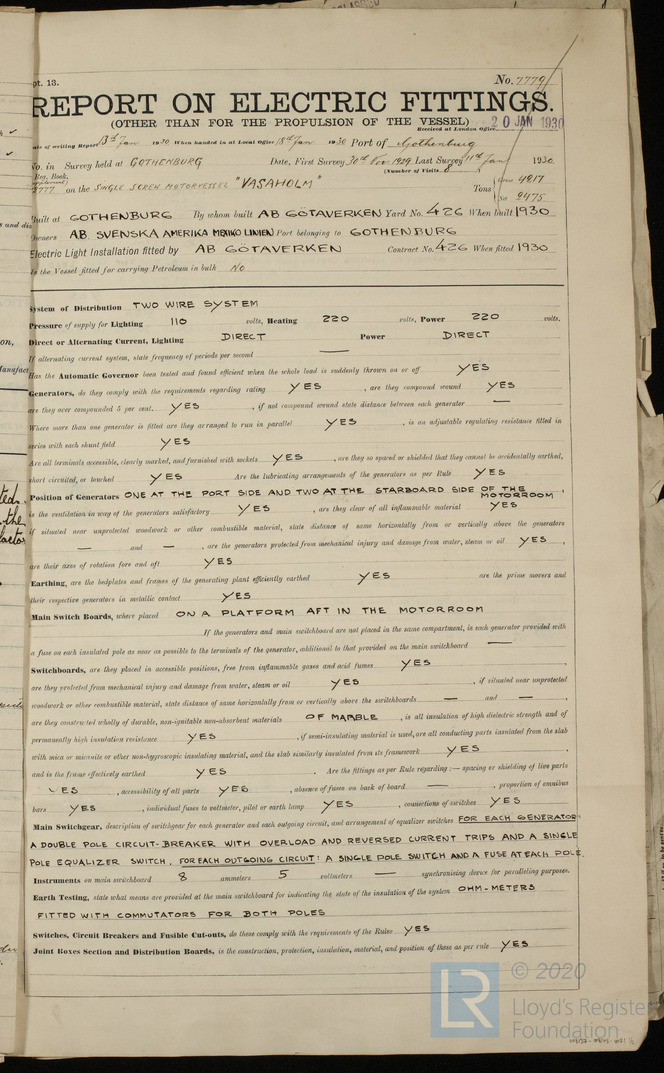 pt. 13. No. 7779
REPORT ON ELECTRIC FITTINGS.
(OTHER THAN FOR THE PROPULSION OF THE VESSEL)
Received at London Office 20 JAN 1930
ate of writing Report 13th Jan 1930 When handed in at Local Office 18th Jan 1930 Port of Gothenburg
No. in Survey held at GOTHENBURG Date, First Survey 30th Nov 1929 Last Survey 11th Jan 1930
Reg. Book. (Number of Visits 8
on the SINGLE SCREW MOTORVESSEL "VASAHOLM" Tons Gross 4217
Net 2475
Built at GOTHENBURG By whom built AB GÖTAVERKEN Yard No. 426 When built 1930
Owners AB. SVENSKA AMERIKA MEXIKO LINIEN Port belonging to GOTHENBURG
Electric Light Installation fitted by AB GÖTAVERKEN Contract No. 426 When fitted 1930
Is the Vessel fitted for carrying Petroleum in bulk NO
System of Distribution TWO WIRE SYSTEM
Pressure of supply for Lighting 110 volts, Heating 220 volts, Power 220 volts.
Direct or Alternating Current, Lighting DIRECT Power DIRECT
If alternating current system, state frequency of periods per second —
Has the Automatic Governor been tested and found efficient when the whole load is suddenly thrown on or off YES
Generators, do they comply with the requirements regarding rating YES , are they compound wound YES
are they over compounded 5 per cent. YES , if not compound wound state distance between each generator —
Where more than one generator is fitted are they arranged to run in parallel YES , is an adjustable regulating resistance fitted in
series with each shunt field YES
Are all terminals accessible, clearly marked, and furnished with sockets YES , are they so spaced or shielded that they cannot be accidentally earthed,
short circuited, or touched YES Are the lubricating arrangements of the generators as per Rule YES
Position of Generators ONE AT THE PORT SIDE AND TWO AT THE STARBOARD SIDE OF THE MOTORROOM ,
is the ventilation in way of the generators satisfactory YES , are they clear of all inflammable material YES
if situated near unprotected woodwork or other combustible material, state distance of same horizontally from or vertically above the generators
— and — , are the generators protected from mechanical injury and damage from water, steam or oil YES ,
are their axes of rotation fore and aft YES
Earthing, are the bedplates and frames of the generating plant efficiently earthed YES are the prime movers and
their respective generators in metallic contact YES
Main Switch Boards, where placed ON A PLATFORM AFT IN THE MOTORROOM
If the generators and main switchboard are not placed in the same compartment, is each generator provided with
a fuse on each insulated pole as near as possible to the terminals of the generator, additional to that provided on the main switchboard —
Switchboards, are they placed in accessible positions, free from inflammable gases and acid fumes YES ,
are they protected from mechanical injury and damage from water, steam or oil YES , if situated near unprotected
woodwork or other combustible material, state distance of same horizontally from or vertically above the switchboards — and — ,
are they constructed wholly of durable, non-ignitable non-absorbent materials OF MARBLE , is all insulation of high dielectric strength and of
permanently high insulation resistance YES , if semi-insulating material is used, are all conducting parts insulated from the slab
with mica or micanite or other non-hygroscopic insulating material, and the slab similarly insulated from its framework YES ,
and is the frame effectively earthed YES . Are the fittings as per Rule regarding :— spacing or shielding of live parts
YES , accessibility of all parts YES , absence of fuses on back of board — , proportion of omnibus
bars YES , individual fuses to voltmeter, pilot or earth lamp YES , connections of switches YES
Main Switchgear, description of switchgear for each generator and each outgoing circuit, and arrangement of equalizer switches FOR EACH GENERATOR
A DOUBLE POLE CIRCUIT-BREAKER WITH OVERLOAD AND REVERSED CURRENT TRIPS AND A SINGLE
POLE EQUALIZER SWITCH. FOR EACH OUTGOING CIRCUIT: A SINGLE POLE SWITCH AND A FUSE AT EACH POLE.
Instruments on main switchboard 8 ammeters 5 voltmeters — synchronising device for paralleling purposes.
Earth Testing, state what means are provided at the main switchboard for indicating the state of the insulation of the system OHM-METERS
FITTED WITH COMMUTATORS FOR BOTH POLES
Switches, Circuit Breakers and Fusible Cut-outs, do these comply with the requirements of the Rules YES
Joint Boxes Section and Distribution Boards, is the construction, protection, insulation, material, and position of these as per rule YES
LR © 2020
Lloyd's Register
Foundation